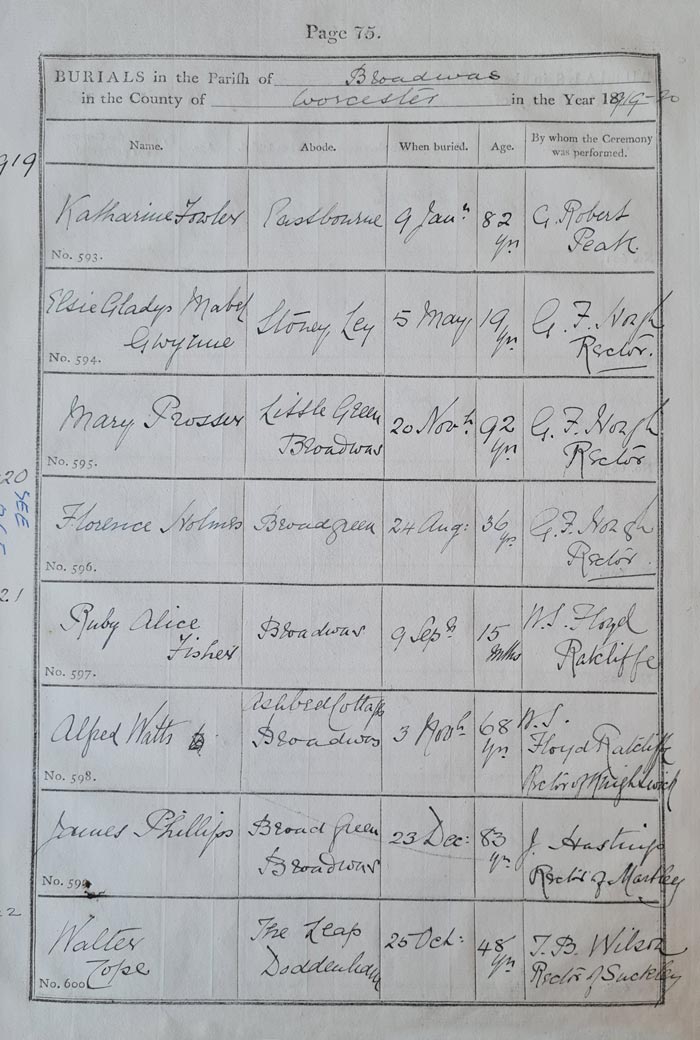 Page 75.
BURIALS in the Parish of Broadwas
in the County of Worcester in the Year 1919-20
Name. Abode. When buried. Age. By whom the Ceremony was performed.
919
Katharine Fowler Eastbourne 9 Janʳ 82 G. Robert
yrs Peak.
No. 593.
Elsie Gladys Mabel Stoney Ley 5 May 19 G. F.
Gwynne yrs Rector.
No. 594.
Mary Prosser Little Green 20 Novʳ 92 G. F.
Broadwas yrs Rector
No. 595.
20
SEE
Florence Holmes Broadgreen 24 Aug: 36 G. F.
yrs Rector
No. 596.
21
Ruby Alice Broadwas 9 Sepʳ 15 W. S. Floyd
Fisher mths Ratcliffe
No. 597.
Ashbed Cottage W. S.
Alfred Watts Broadwas 3 Novʳ 68 Floyd Ratcliffe
yrs Rector of Knightwick
No. 598.
James Phillips Broad Green 23 Dec: 83 J. Hastings
Broadwas yrs Rector of Martley
No. 599
2
Walter The Leap 25 Oct: 48 T. B. Wilson
Cope Doddenham yrs Rector of Suckley
No. 600